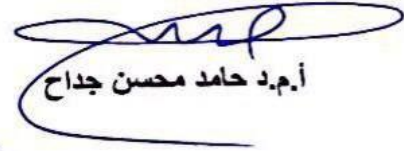 أ.م.د حامد محسن جداح